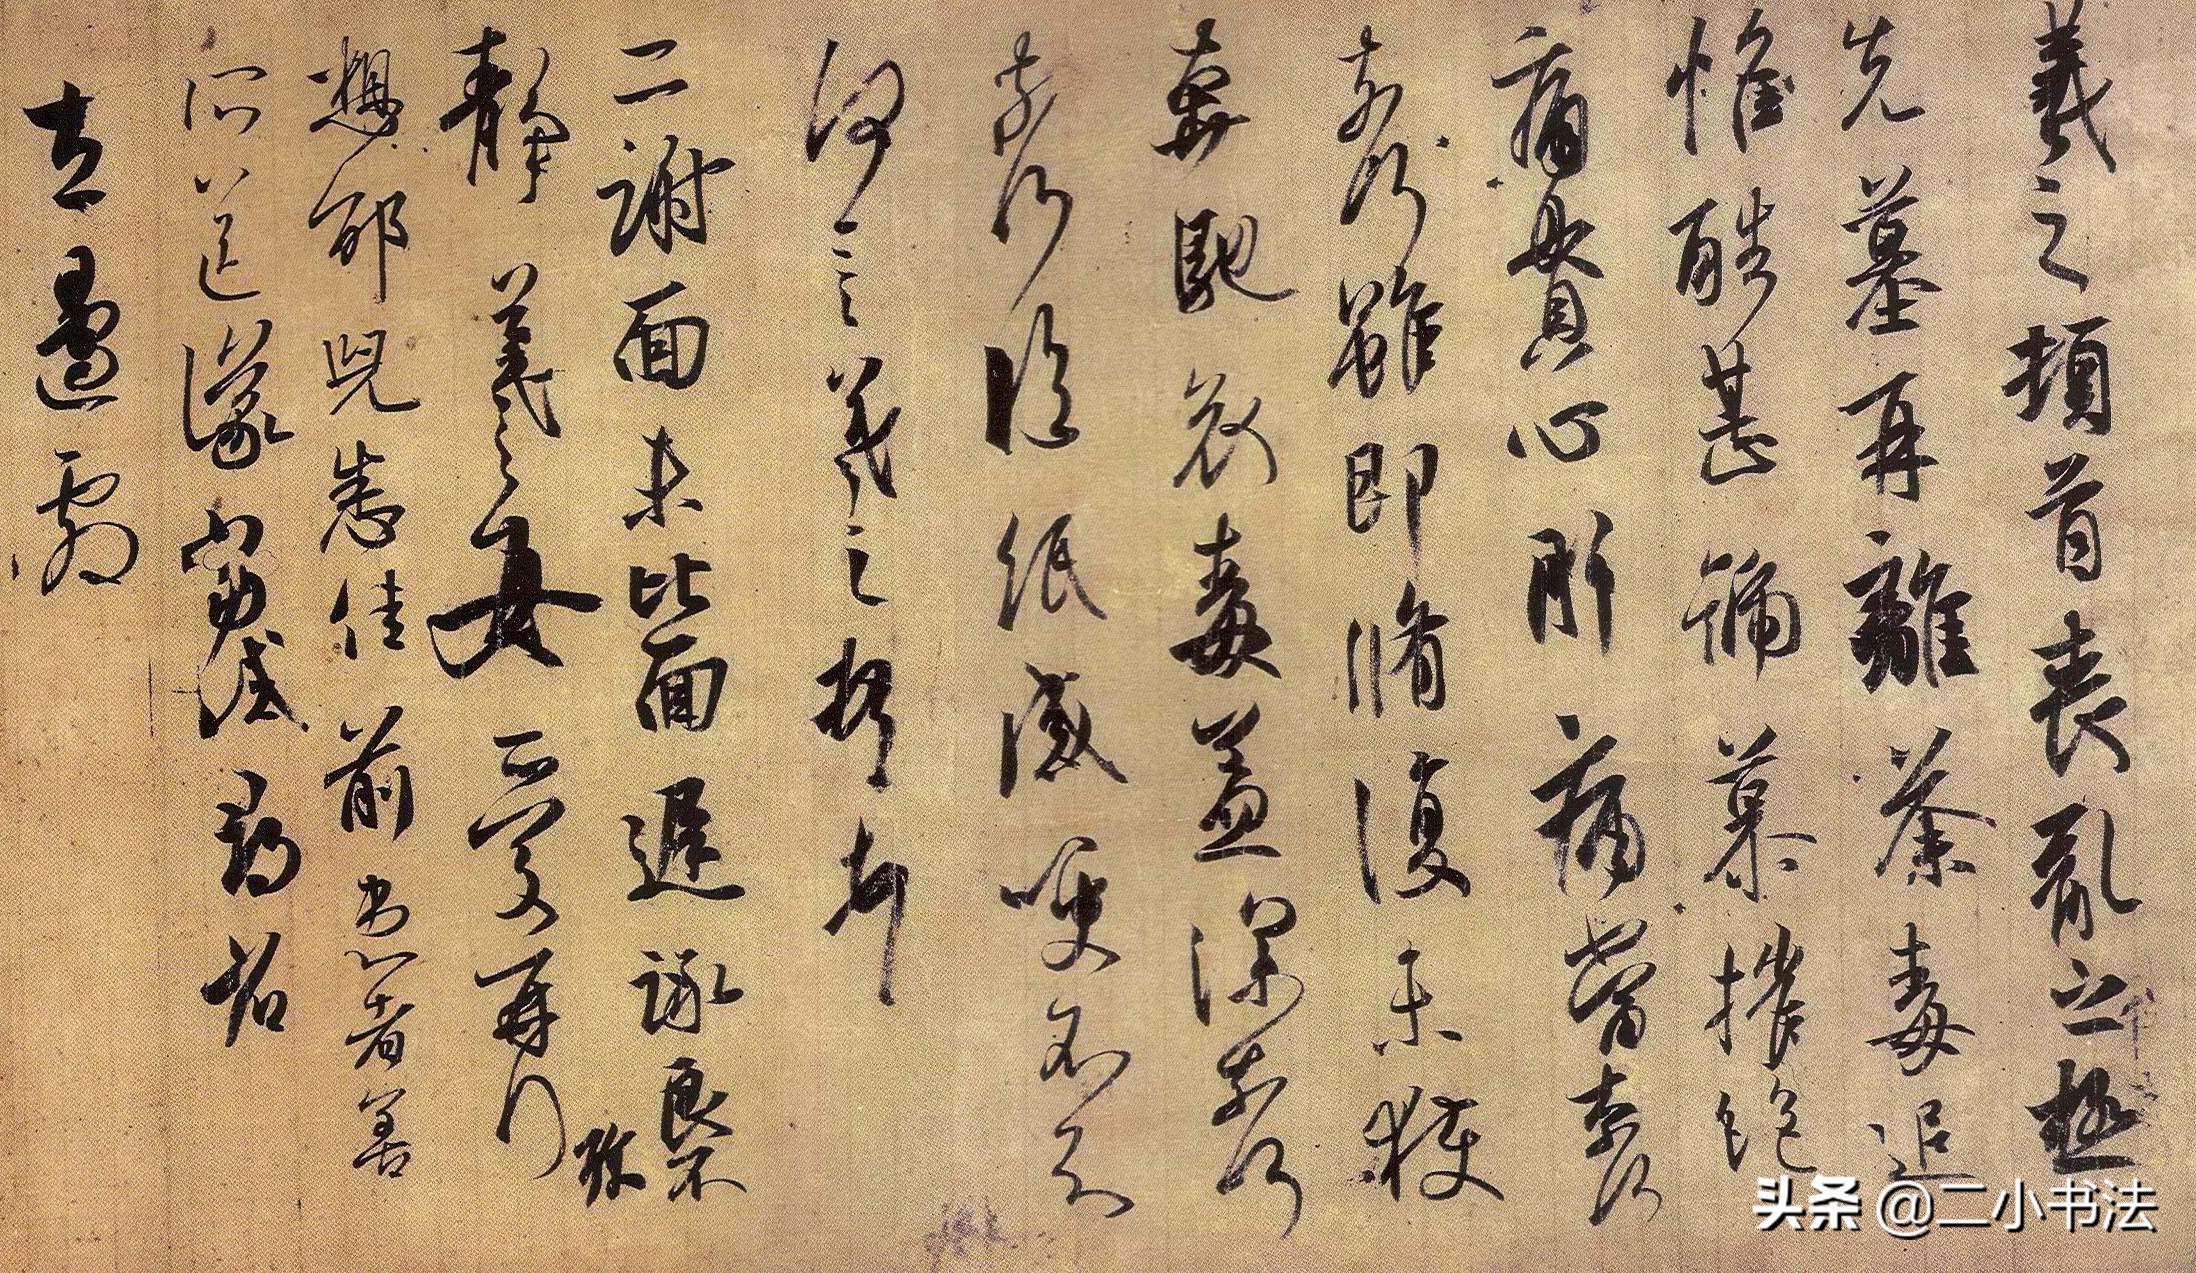 羲之頓首喪亂之極
先墓再離荼毒追
惟酷甚號慕摧絕
痛貫心肝痛當奈何
奈何雖即脩復未獲
奔馳哀毒益深奈何
奈何臨紙感哽不知
何言羲之頓首頓首
二謝面未比面遲詠良不
靜羲之女愛再拜
想邵兒悉佳前患者善
所送議當試尋省
左邊劇
头条 @二小书法